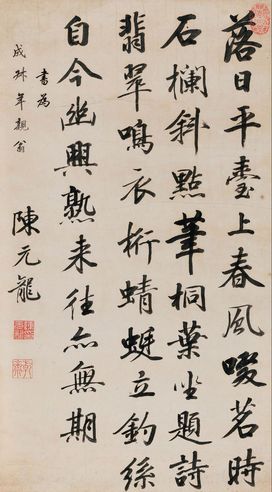 落日平臺上春風啜茗時
石欄斜點筆桐葉坐題詩
翡翠鳴衣桁蜻蜓立釣絲
自今幽興熟来往亦無期
書為
成琳年親翁
陳元龍